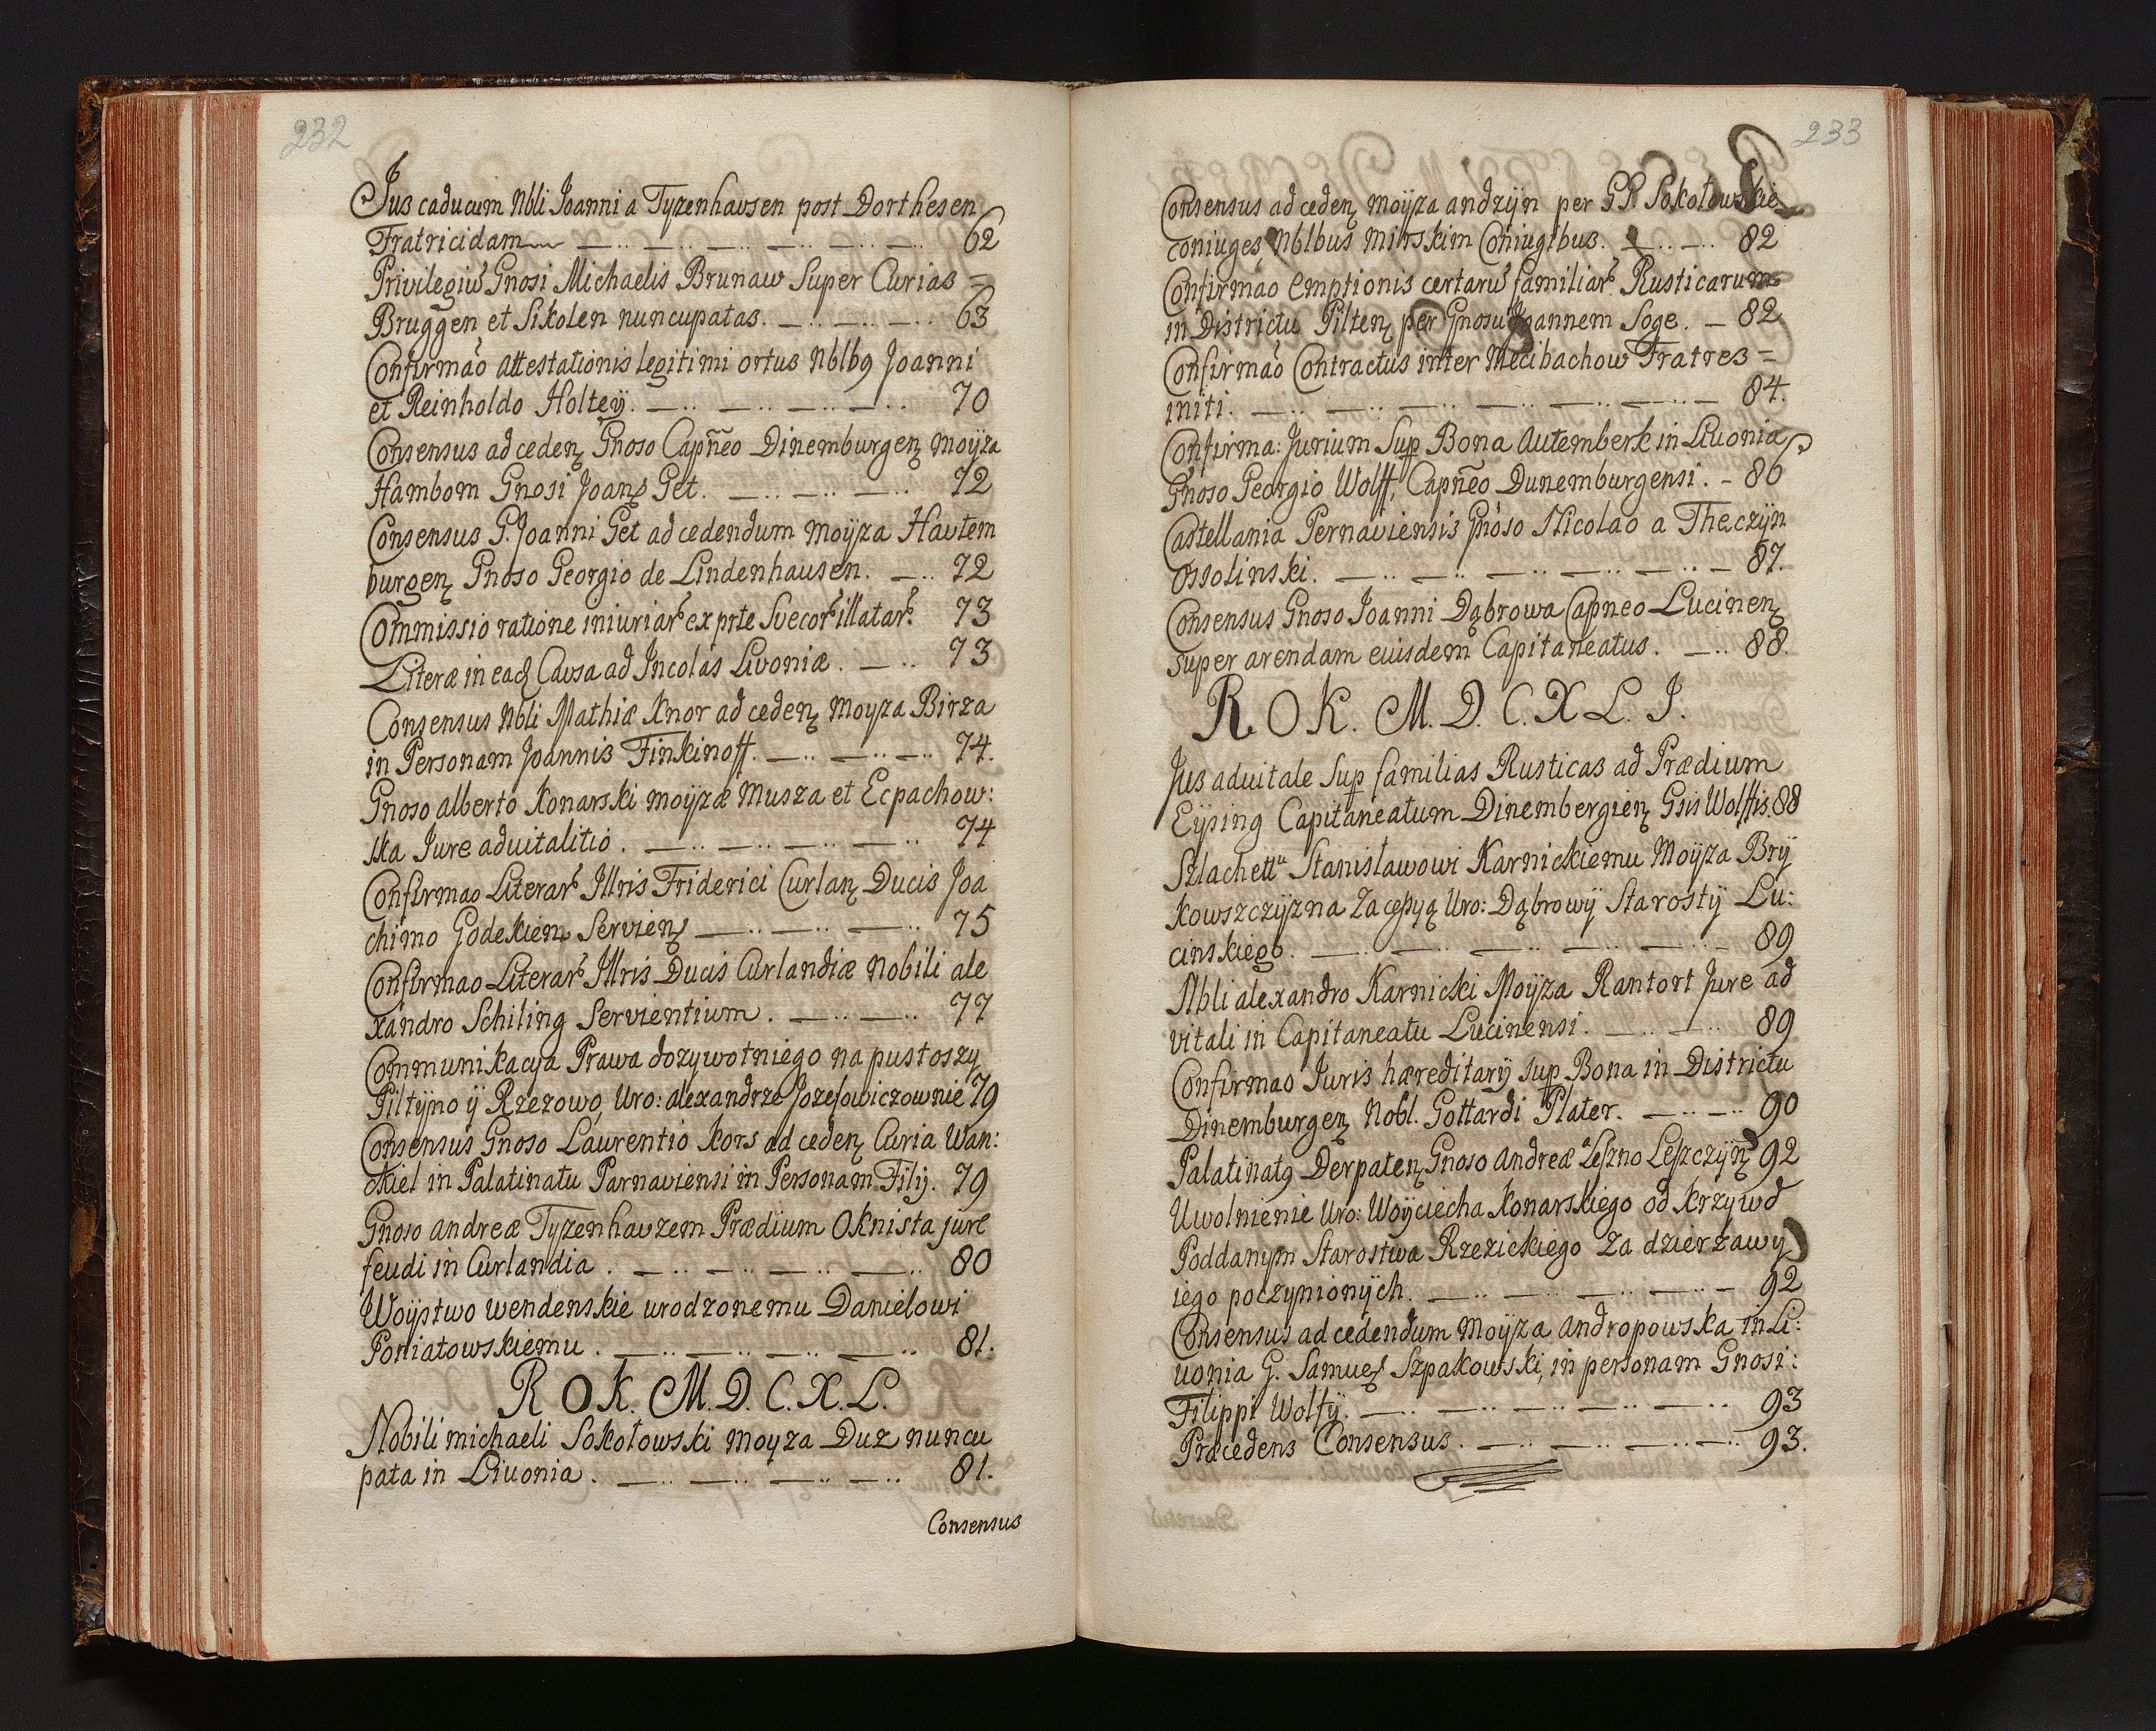 232
Jus caducum Nbli Joanni a Tyzenhausen post Dorthesen
Fratricidam 62
Privilegiu Gnosi Michaelis Brunaw Super Curias =
Bruggen et Sikolen nuncupatas. 63
Confirmao attestationis legitimi ortus Nblbq Joanni
et Reinholdo Holteÿ. 70
Consensus ad ceden Gnoso Capneo Dinemburgen Moÿza
Hambom Gnosi Joans Get. 72
Consensus G. Joanni Get ad cedendum Moÿza Hautem
burgen Gnoso Georgio de Lindenhausen. 72
Commissio ratione iniuriar ex prte Suecor illatar. 73
Literæ in ead Causa ad Incolas Livoniæ. 73
Consensus Nbli Mathiæ Knor ad ceden Moyza Birza
in Personam Joannis Finkinoff. 74.
Gnoso alberto Konarski moÿzæ Musza et Ecpachow:
ska Jure aduitalitio. 74
Confirmao Literar Illris Friderici Curlan Ducis Joa
chimo Godekiem Servien 75
Confirmao Literar Illris Ducis Curlandiæ Nobili ale
xandro Schiling Servientium. 77
Communikacya Prawa dozywotniego na pustoszy
Piltÿno ÿ Rzezowo, Uro: alexandrze Jozefowiczownie 79
Consensus Gnoso Laurentio Kors ad ceden Curia Wan:
ckiel in Palatinatu Parnaviensi in Personam Filÿ. 79
Gnoso andreæ Tyzenhauzem Prædium Oknista jure
feudi in Curlandia. 80
Woÿstwo wendenskie urodzonemu Danielowi
Poniatowskiemu. 81.
R O K. M. D. C. X. L.
Nobili michaeli Sokołowski Moyza Duz nuncu
pata in Liuonia. 81.
Consensus
233
Consensus ad ceden moÿza andzÿn per GG. Sokołowskie
coniuges Nblbus Minskim Coniugibus. 82
Confirmao Emptionis certaru familiar Rusticarum
in Districtu Pilten per Gnosu Joannem Soge. 82
Confirmao Contractus inter Mecibachow Fratres =
initi. 84.
Confirma: Jurium Sup Bona Autemberk in Liuonia
Gnoso Georgio Wolff, Capneo Dunemburgensi. 86
Castellania Pernaviensis Gnoso Nicolao a Theczÿn
Ossolinski. 87.
Consensus Gnoso Joanni Dąbrowa Capneo Lucinen
super arendam eiusdem Capitaneatus. 88.
R. O K. M. D. C. X L. I.
Jus aduitale Sup familias Rusticas ad Prædium
Eÿsing Capitaneatum Dinembergien Gsis Wolffis. 88
Szlachettu Stanisławowi Karnickiemu Moÿza Brÿ
kowszczÿzna Za cessyą Uro: Dąbrowÿ Starostÿ Lu:
cinskiego. 89
Nbli alexandro Karnicki Moÿza Rantort Jure ad
vitali in Capitaneatu Lucinensi. 89
Confirmao Juris hæreditarÿ sup Bona in Districtu
Dinemburgen Nobl. Gottardi Plater. 90
Palatinatq Derpaten Gnoso Andreæ a Leszno Leszczÿn 92
Uwolnienie Uro: Woÿciecha Konarskiego od krzywd
Poddanym Starostwa Rzezickiego Za dzierżawy
iego poczynionÿch. 92
Consensus ad cedendum Moÿza andropowska in Li:
uonia G. Samuel Szpakowski, in personam Gnosi:
Filippi Wolfÿ. 93
Præcedens Consensus. 93.